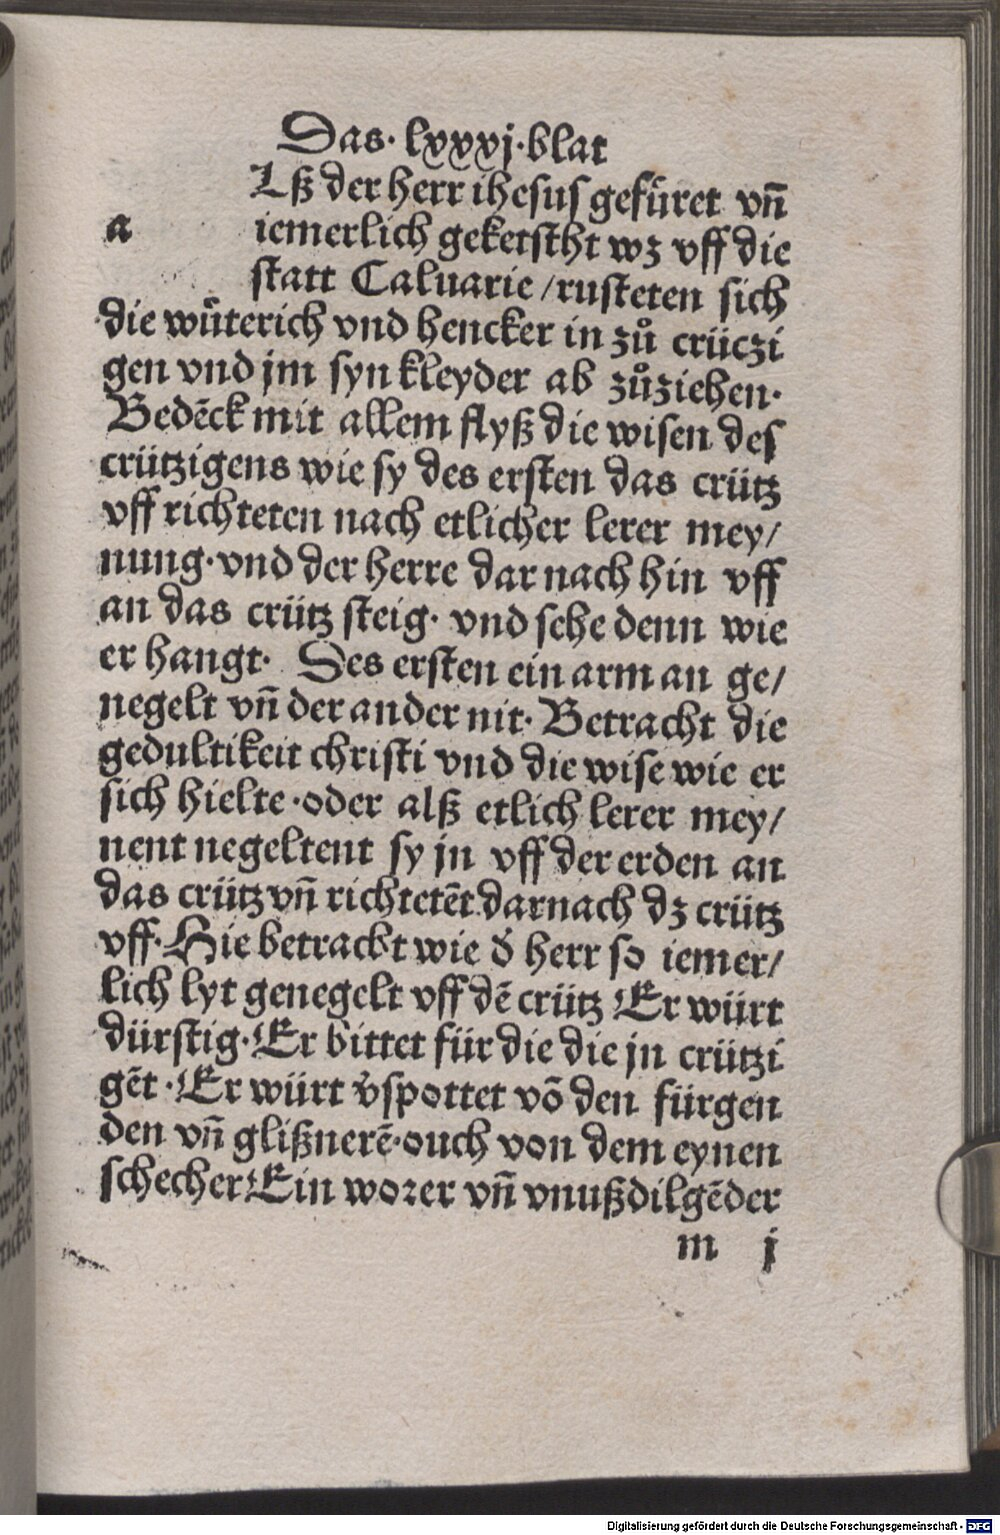 Das· lxxxj·blat
Lß der herr ihesus gefuͤret vñ
a iemerlich geketstht wz vff die
statt Caluarie /rusteten sich
die wuͤterich vnd hencker in zuͦ crüczi
gen vnd jm syn kleyder ab zuͦziehen·
Bedēck mit allem flyß die wisen des
crützigens wie sy des ersten das crütz
vff richteten nach etlicher lerer mey/
nung·vnd der herre dar nach hin vff
an das crütz steig· vnd sehe denn wie
er hangt· Des ersten ein arm an ge/
negelt vñ der ander nit· Betracht die
gedultikeit christi vnd die wise wie er
sich hielte·oder alß etlich lerer mey/
nent negeltent sy jn vff der erden an
das crütz vñ richtetēt darnach dz crütz
vff·Hie betracht wie d̕ herr so iemer/
lich lyt genegelt vff dē crütz Er würt
dürstig·Er bittet für die die jn crützi
gēt·Er würt v̕spottet võ den fürgen
den vñ glißnerē·ouch von dem eynen
schecher Ein worer vñ vnußdilgēder
m j
Digitalisierung gefördert durch die Deutsche Forschungsgemeinschaft - DFG